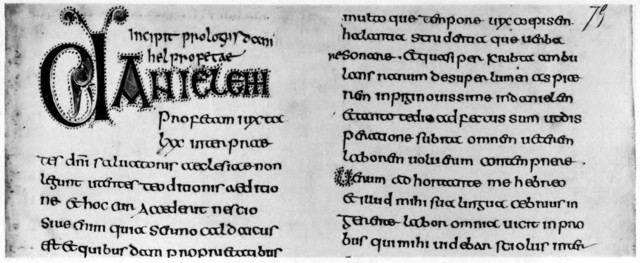 incipit prologus dani
hel propetae
DANIELEM
profetam iuxta
lxx interprae
tes dni saluatoris aeclesiae non
legunt utentes teoditionis aeditio
ne et hoc cur accederit nescio
siue enim quia sermo caldaicus
est et quibus dam proprietatibus
multo que tempore uix coepissem
halantia strudentia que uerba
resonare. et quasi per scribta ambu
lans rarum desuper lumen aspice
rem inpiginouissime in danielem
et tanto tedio adfectus sum ut dis
peratione subita omnem ueterem
laborem uoluerim contempnere.
Uerum adhortante me hebreo
et illud mihi sua lingua crebrius in
gerente labor omnia uicit inpro
bus qui mihi uidebar sciolus inter